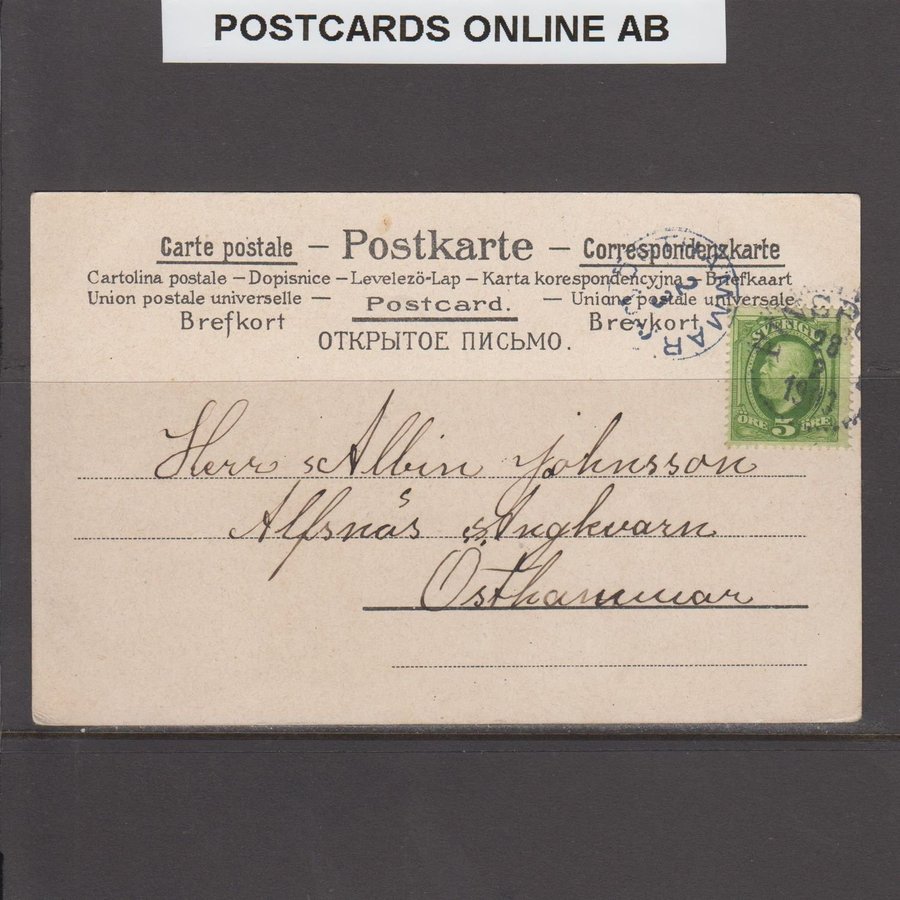 POSTCARDS ONLINE AB
Carte postale – Postkarte – Correspondenzkarte
Cartolina postale – Dopisnice – Levelező-Lap – Karta korespondencyjna – Briefkaart
Union postale universelle – Postcard. – Unione postale universale
Brefkort Brevkort
ОТКРЫТОЕ ПИСЬМО.
SVERIGE
5
ÖRE ÖRE
28
2
Herr Albin Johnsson
Alfsnäs Ångkvarn
Östhammar